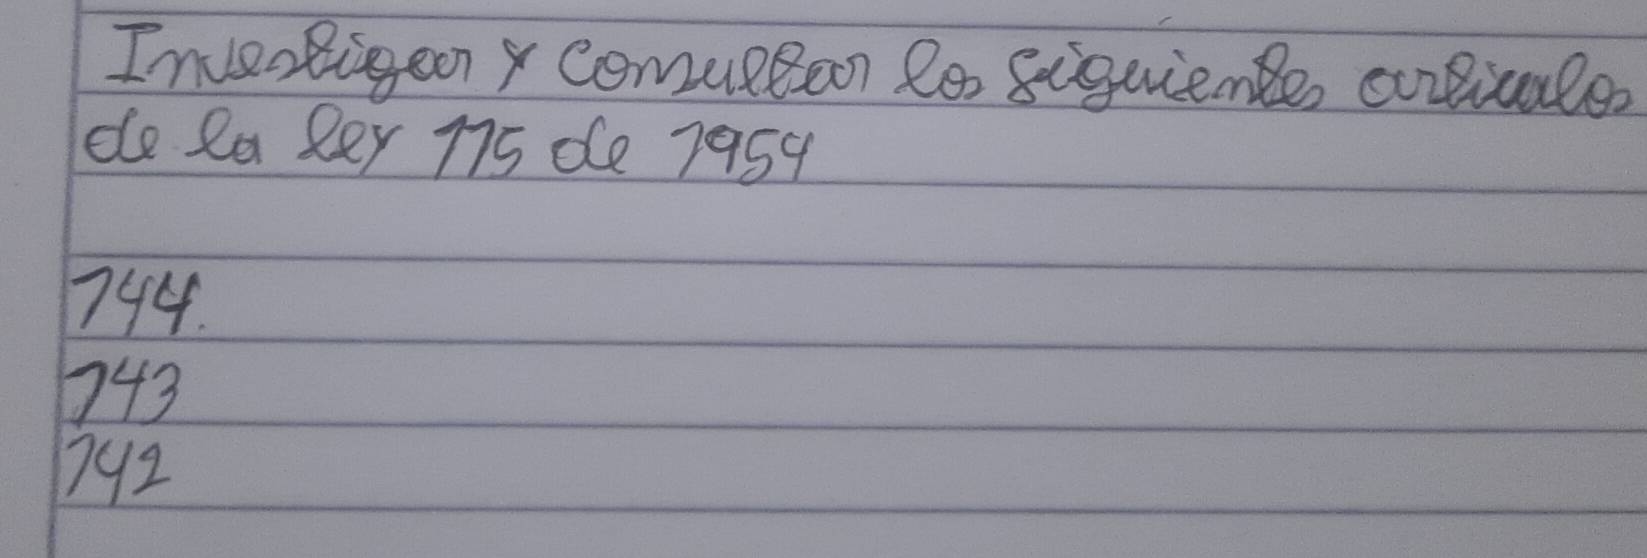 Investigar y consultar los siguientes articulos
de la ley 115 de 1954
144.
143
142